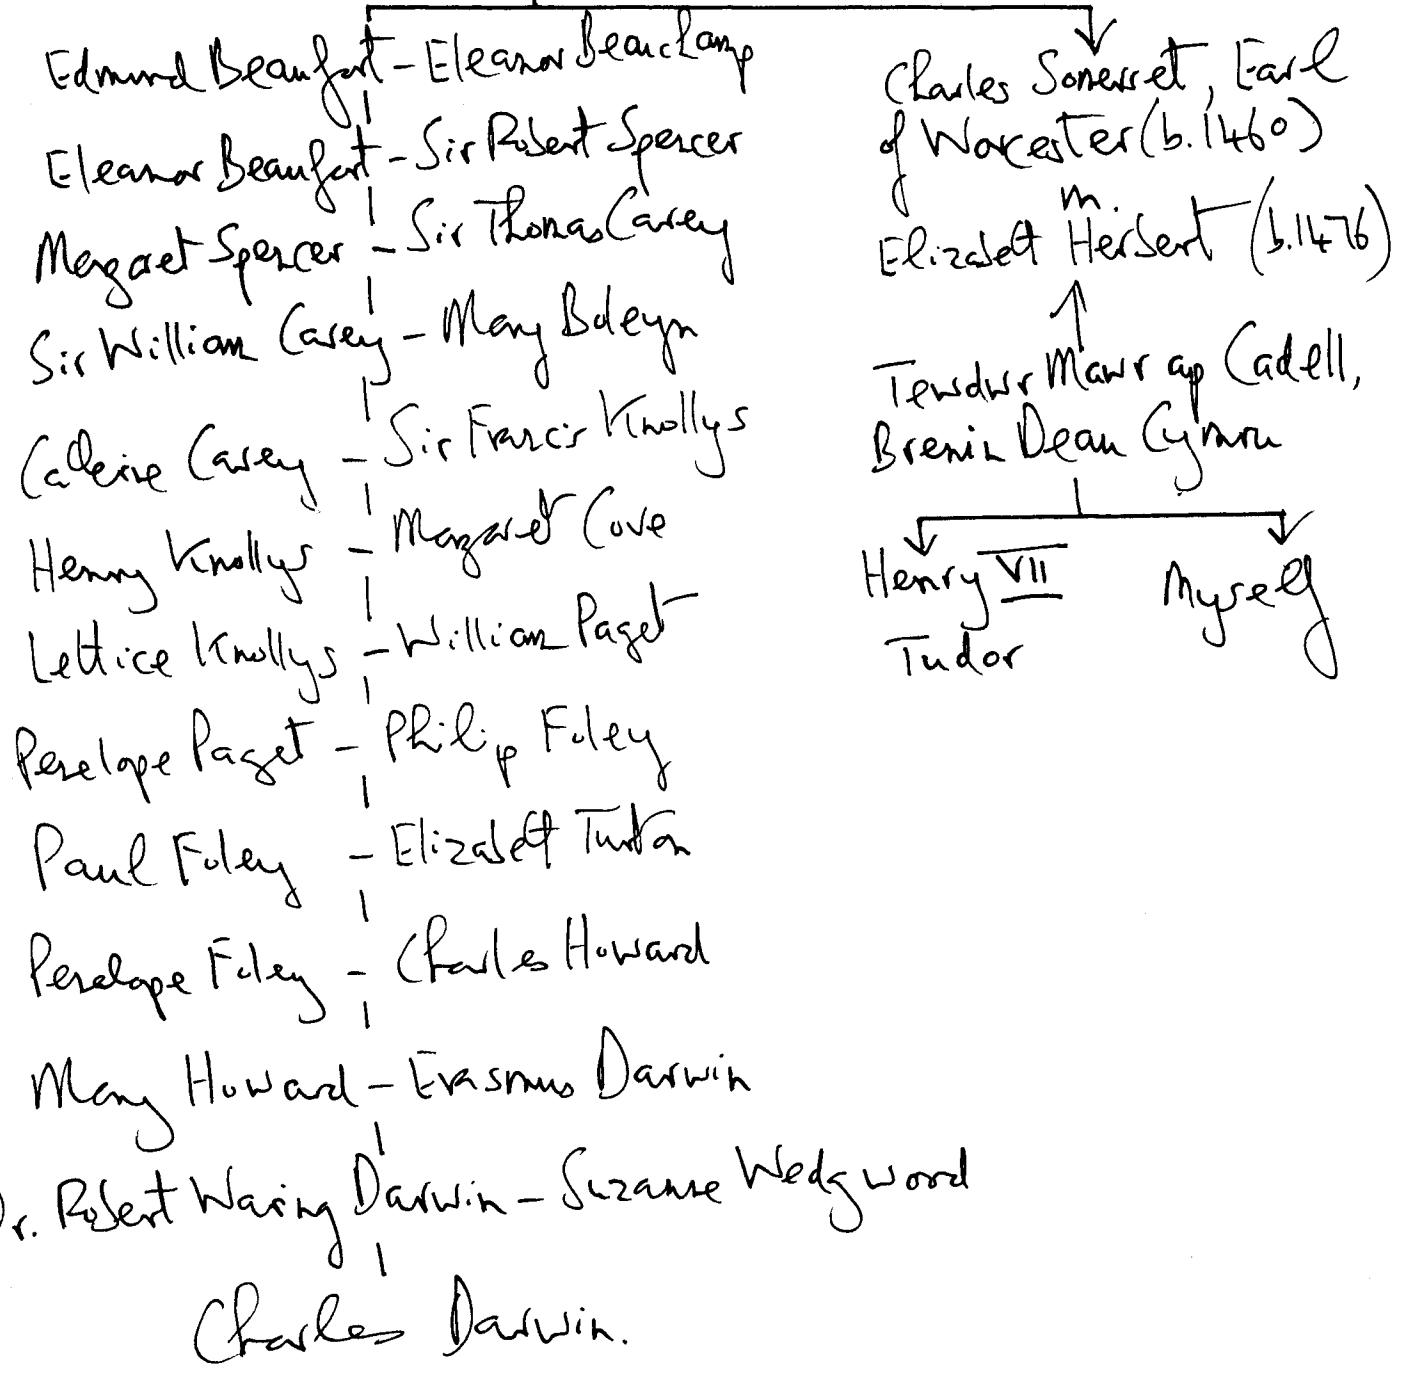 Edmund Beaufort - Eleanor Beauchamp
Eleanor Beaufort - Sir Robert Spencer
Margaret Spencer - Sir Thomas Carey
Sir William Carey - Mary Boleyn
Catherine Carey - Sir Francis Knollys
Henry Knollys - Margaret Cove
Lettice Knollys - William Paget
Penelope Paget - Philip Foley
Paul Foley - Elizabeth Turton
Penelope Foley - Charles Howard
Mary Howard - Erasmus Darwin
Dr. Robert Waring Darwin - Suzanne Wedgwood
Charles Darwin.
Charles Somerset, Earl
of Worcester (b.1460)
m.
Elizabeth Herbert (b.1476)
Tewdwr Mawr ap Cadell,
Brenin Deau Cymru
Henry VII
Tudor
Myself